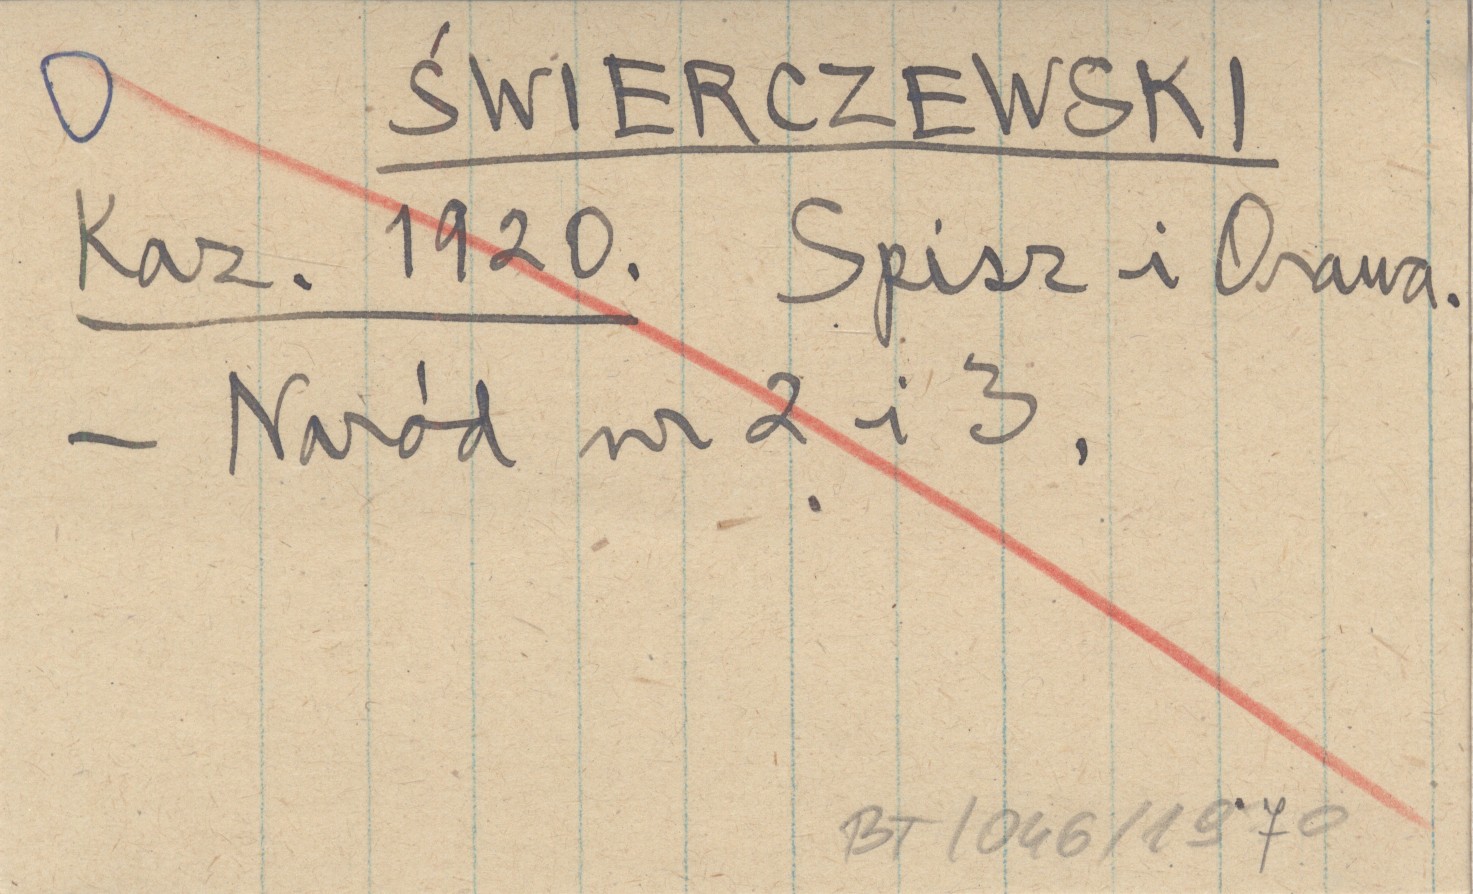 ŚWIERCZEWSKI
Kaz. 1920. Spisz i Orawa.
– Naród nr 2 i 3.
BT/046/1970